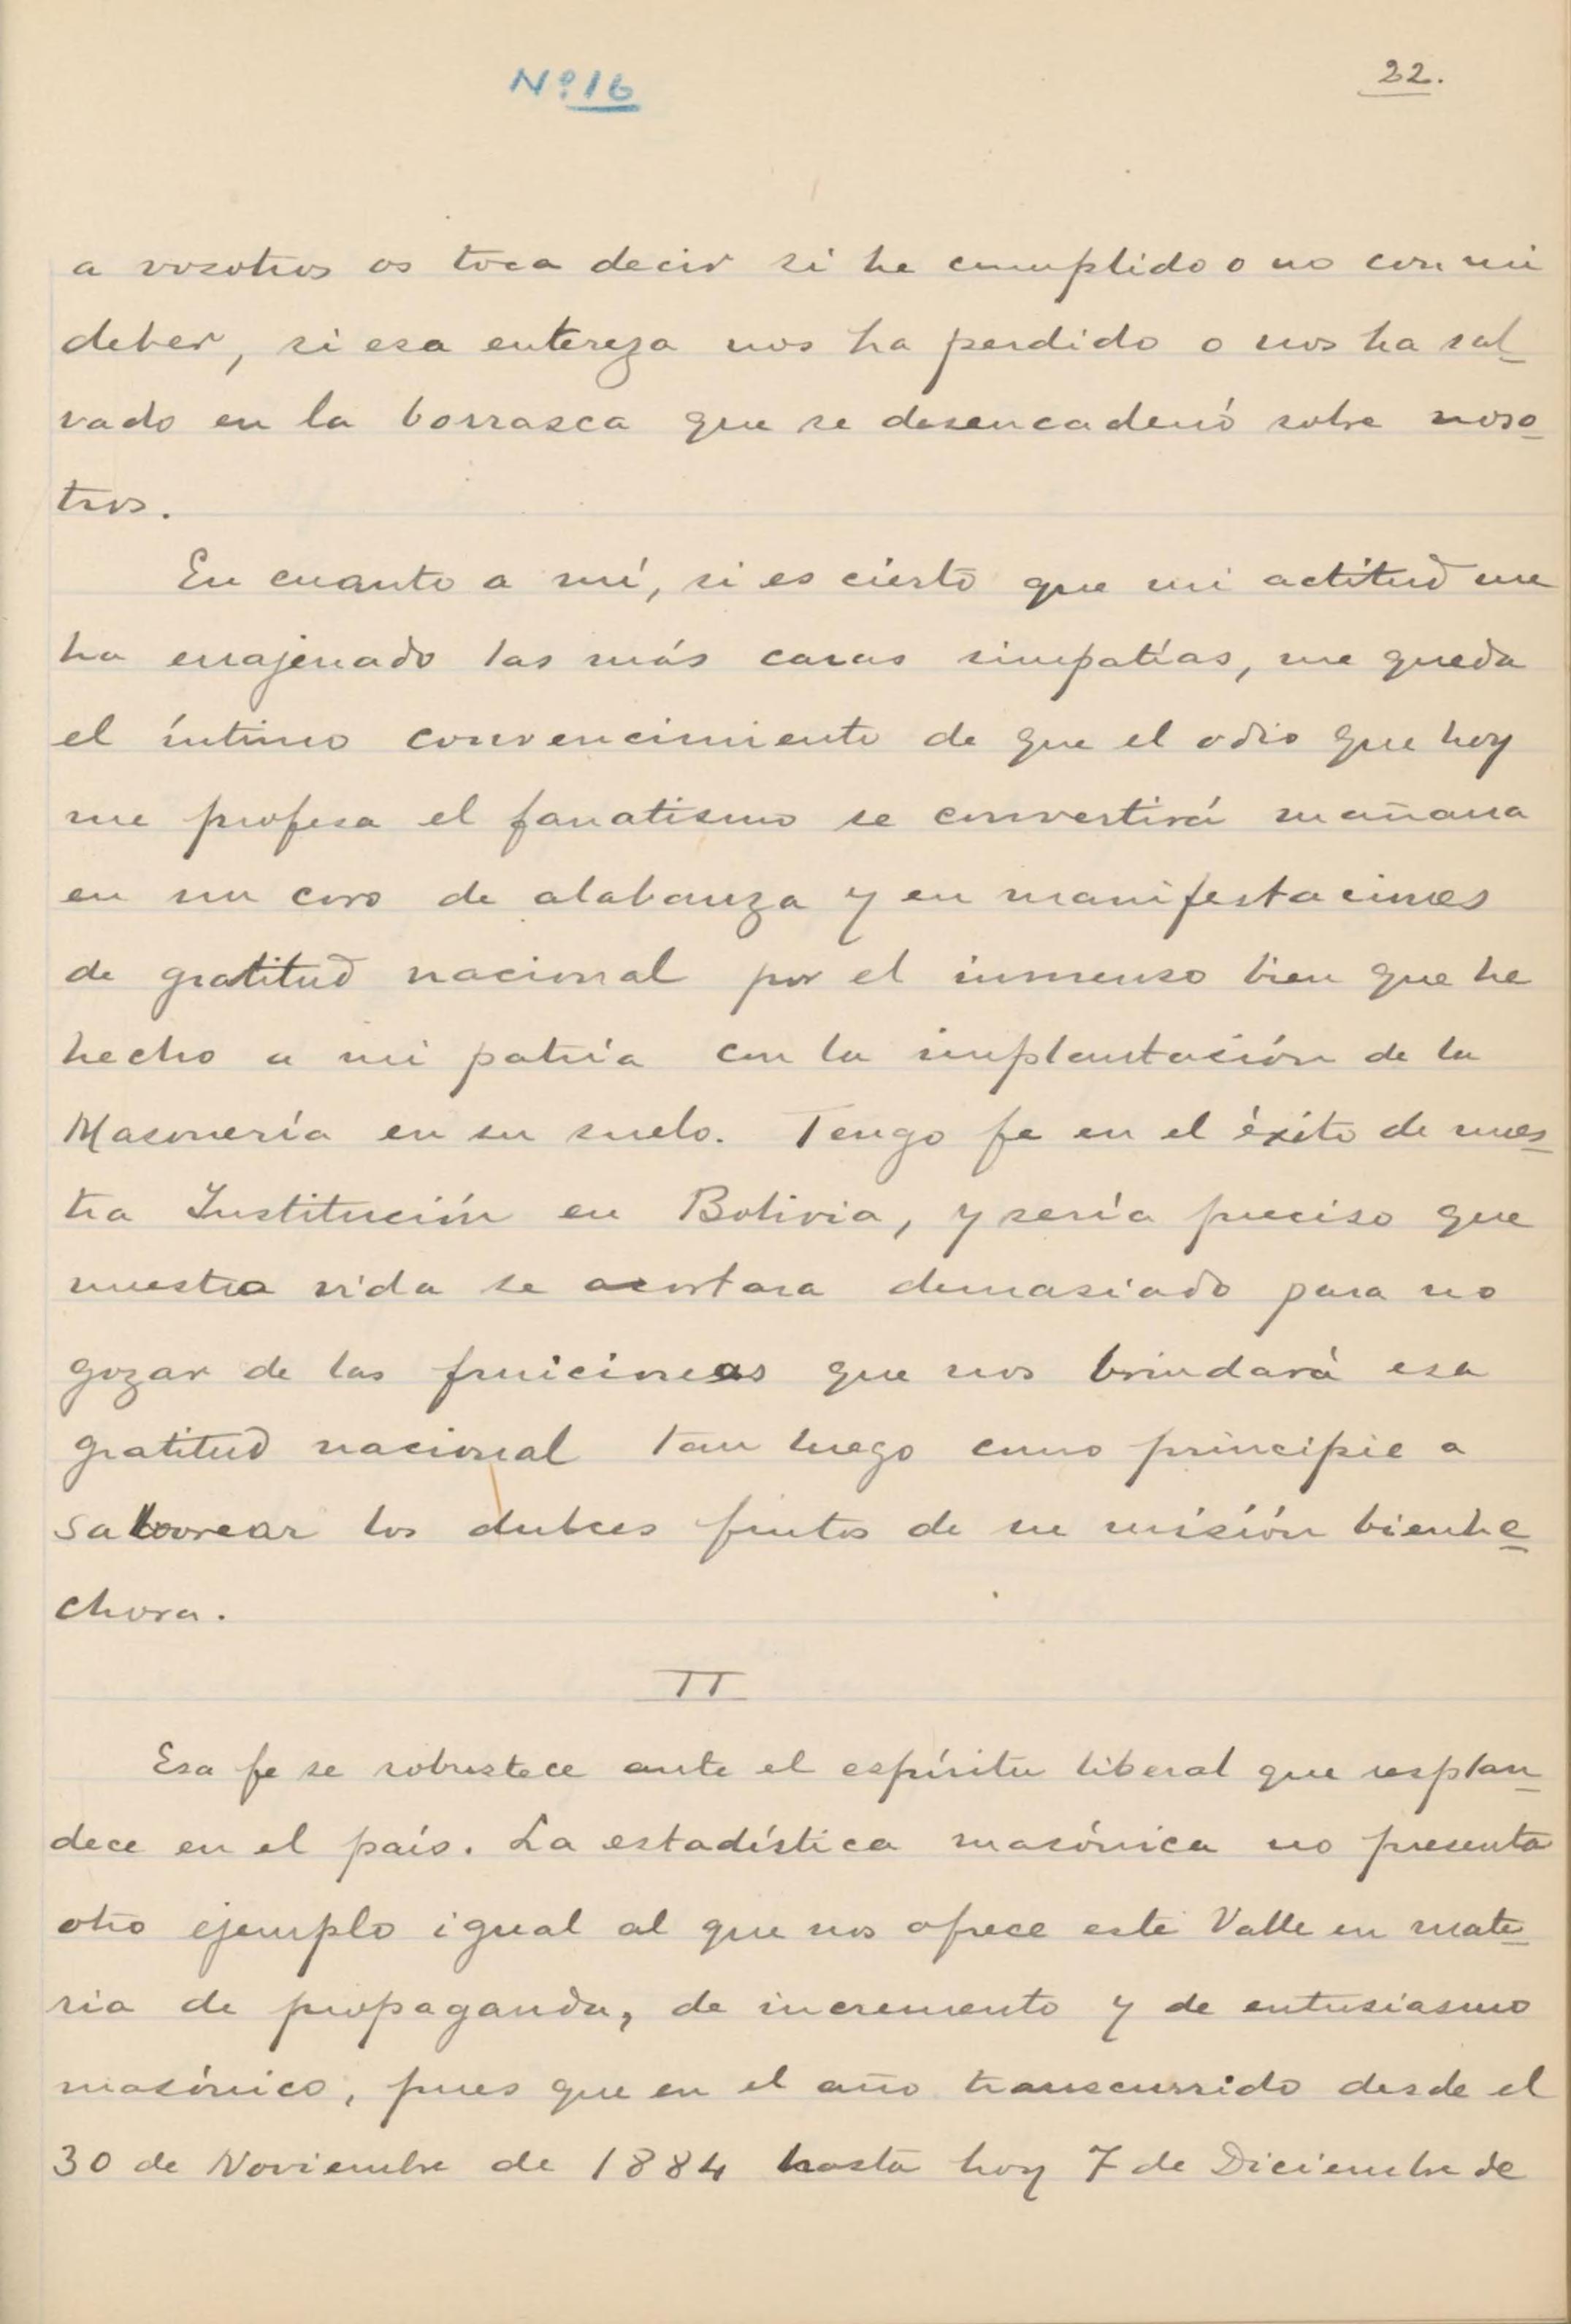 Nº 16
22.
a vosotros os toca decir si he cumplido o no con mi
deber, si esa entereza nos ha perdido o nos ha sal-
vado en la borrasca que se desencadenó sobre noso-
tros.
En cuanto a mí, si es cierto que mi actitud me
ha enajenado las más caras simpatías, me queda
el íntimo convencimiento de que el odio que hoy
me profesa el fanatismo se convertirá mañana
en un coro de alabanza y en manifestaciones
de gratitud nacional por el inmenso bien que he
hecho a mi patria con la implantación de la
Masonería en su suelo. Tengo fe en el éxito de nues-
tra Institución en Bolivia, y sería preciso que
nuestra vida se acortara demasiado para no
gozar de las fruiciones que nos brindará esa
gratitud nacional tan luego como principie a
saborear los dulces frutos de su misión bienhe-
chora.
II
Esa fe se robustece ante el espíritu liberal que resplan-
dece en el país. La estadística masónica no presenta
otro ejemplo igual al que nos ofrece este Valle en mate-
ria de propaganda, de incremento y de entusiasmo
masónico, pues que en el año transcurrido desde el
30 de Noviembre de 1884 hasta hoy 7 de Diciembre de